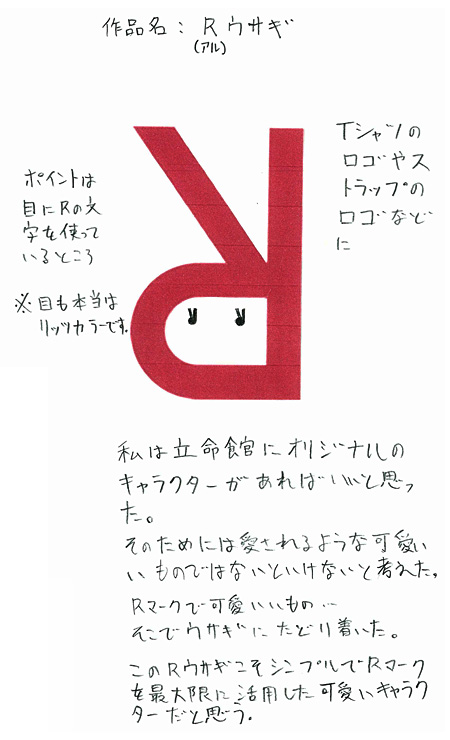 作品名：Rウサギ
(アル)
Tシャツの
ロゴやス
トラップの
ロゴなど
に
ポイントは
目にRの文
字を使って
いるところ
※目も本当は
リッツカラーです。
私は立命館にオリジナルの
キャラクターがあればいいと思っ
た。
そのためには愛されるような可愛い
いものではないといけないと考えた。
Rマークで可愛いいもの…
そこでウサギにたどり着いた。
このRウサギこそシンプルでRマーク
を最大限に活用した可愛いキャラク
ターだと思う。